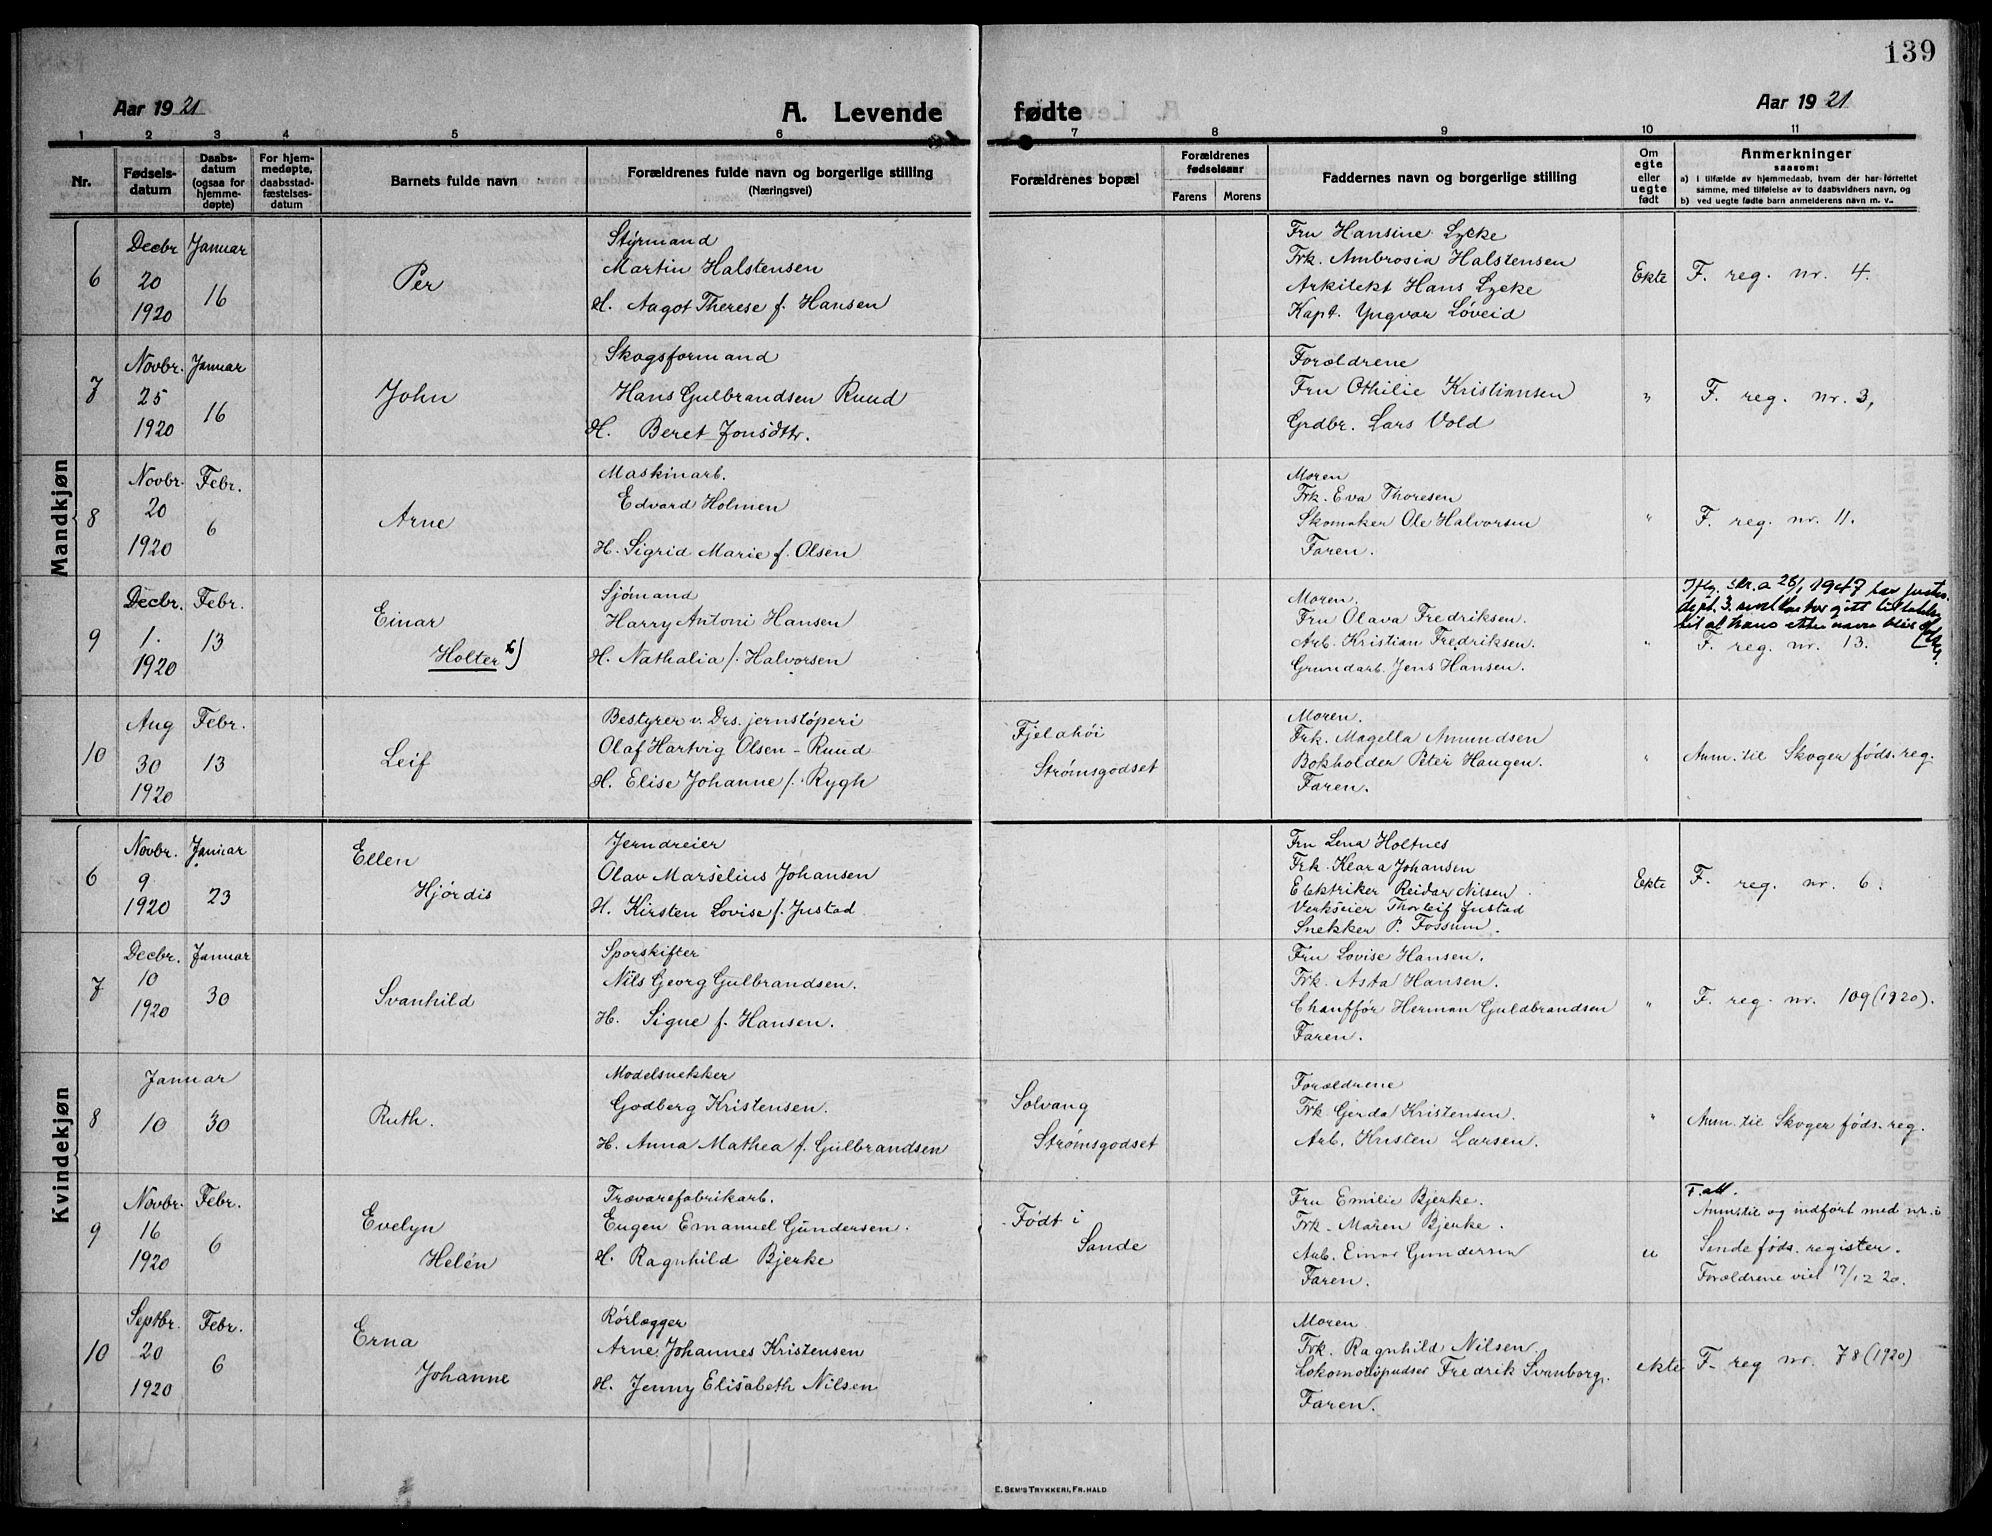 139
Aar 1921
A. Levende
fødte
Aar 1921
1 2 3 4 5 6 7 8 9 10 11
Nr.
Fødsels-
datum
Daabs-
datum
(ogsaa for
hjemme-
døpte)
For hjem-
medøpte,
daabsstad-
fæstelses-
datum
Barnets fulde navn
Forældrenes fulde navn og borgerlige stilling
(Næringsvei)
Forældrenes bopæl
Forældrenes
fødselsaar
Farens Morens
Faddernes navn og borgerlige stilling
Om
egte
eller
uegte
født
Anmerkninger
saasom:
a) i tilfælde av hjemmedaab, hvem der har forrettet
samme, med tilføielse av to daabsvidners navn, og
b) ved uegte fødte barn anmelderens navn m. v.
Mandkjøn
6
Decbr
20
1920
Januar
16
Per
Styrmand
Martin Halstensen
H. Aagot Therese f. Hansen
Fru Hansine Lycke
Frk. Ambrosia Halstensen
Arkitekt Hans Lycke
Kapt. Yngvar Løveid
Ekte
F. reg. nr. 4.
7
Novbr.
25
1920
Januar
16
John
Skogsformand
Hans Gulbrandsen Ruud
H. Beret Jonsdtr.
Forældrene
Fru Othilie Kristiansen
Grdbr. Lars Vold
"
F. reg. nr. 3,
8
Novbr.
20
1920
Febr.
6
Arne
Maskinarb.
Edvard Holmen
H. Sigrid Marie f. Olsen
Moren
Frk. Eva Thoresen
Skomaker Ole Halvorsen
Faren.
"
F. reg. nr. 11.
9
Decbr.
1.
1920
Febr.
13
Einar
Holter
Sjømand
Harry Antoni Hansen
H. Nathalia f. Halvorsen
Moren.
Fru Olava Fredriksen.
Arb. Kristian Fredriksen.
Grundarb. Jens Hansen.
"
Ifg. skr. a 26/1 1947 har justis
dept. 3. sivilkontor gitt tillatelse
til at hans etternavn blir
F. reg. nr. 13.
10
Aug
30
1920
Febr.
13
Leif
Bestyrer v. Drs. jernstøperi
Olaf Hartvig Olsen-Ruud
H. Elise Johanne f. Rygh
Fjelahøi
Strømsgodset
Moren.
Frk. Magella Amundsen
Bokholder Peter Haugen.
Faren.
"
Anm. til Skoger føds. reg.
Kvindekjøn
6
Novbr.
9
1920
Januar
23
Ellen
Hjørdis
Jerndreier
Olav Marselius Johansen
H. Kirsten Lovise f. Justad
Fru Lena Holtnes
Frk. Klara Johansen
Elektriker Reidar Nilsen
Verkseier Thorleif Justad
Snekker P. Fossum.
Ekte
F. reg. nr. 6.
7
Decbr.
10
1920
Januar
30
Svanhild
Sporskifter
Nils Georg Gulbrandsen.
H. Signe f. Hansen.
Fru Lovise Hansen.
Frk. Asta Hansen.
Chauffør Herman Guldbrandsen
Faren.
"
F. reg. nr. 109 (1920).
8
Januar
10
30
Ruth.
Modelsnekker
Godberg Kristensen.
H. Anna Mathea f. Gulbrandsen
Solvang
Strømsgodset
Forældrene
Frk. Gerda Kristensen.
Arb. Kristen Larsen.
"
Anm. til Skoger føds. reg.
9
Novbr.
16
1920
Febr.
6
Evelyn
Helén
Trævarefabrikarb.
Eugen Emanuel Gundersen.
H. Ragnhild Bjerke
Født i
Sande
Fru Emilie Bjerke.
Frk. Maren Bjerke.
Arb. Einar Gundersen
Faren.
u
F. att.
Anm. til og indført med nr. i
Sande føds. register.
Forældrene viet 17/12 20.
10
Septbr.
20
1920
Febr.
6
Erna
Johanne
Rørlægger
Arne Johannes Kristensen
H. Jenny Elisabeth Nilsen
Moren
Frk. Ragnhild Nilsen
Lokomotivpudser Fredrik Svanborg.
Faren.
ekte
F. reg nr. 78 (1920)
E. SEM'S TRYKKERI, FR. HALD